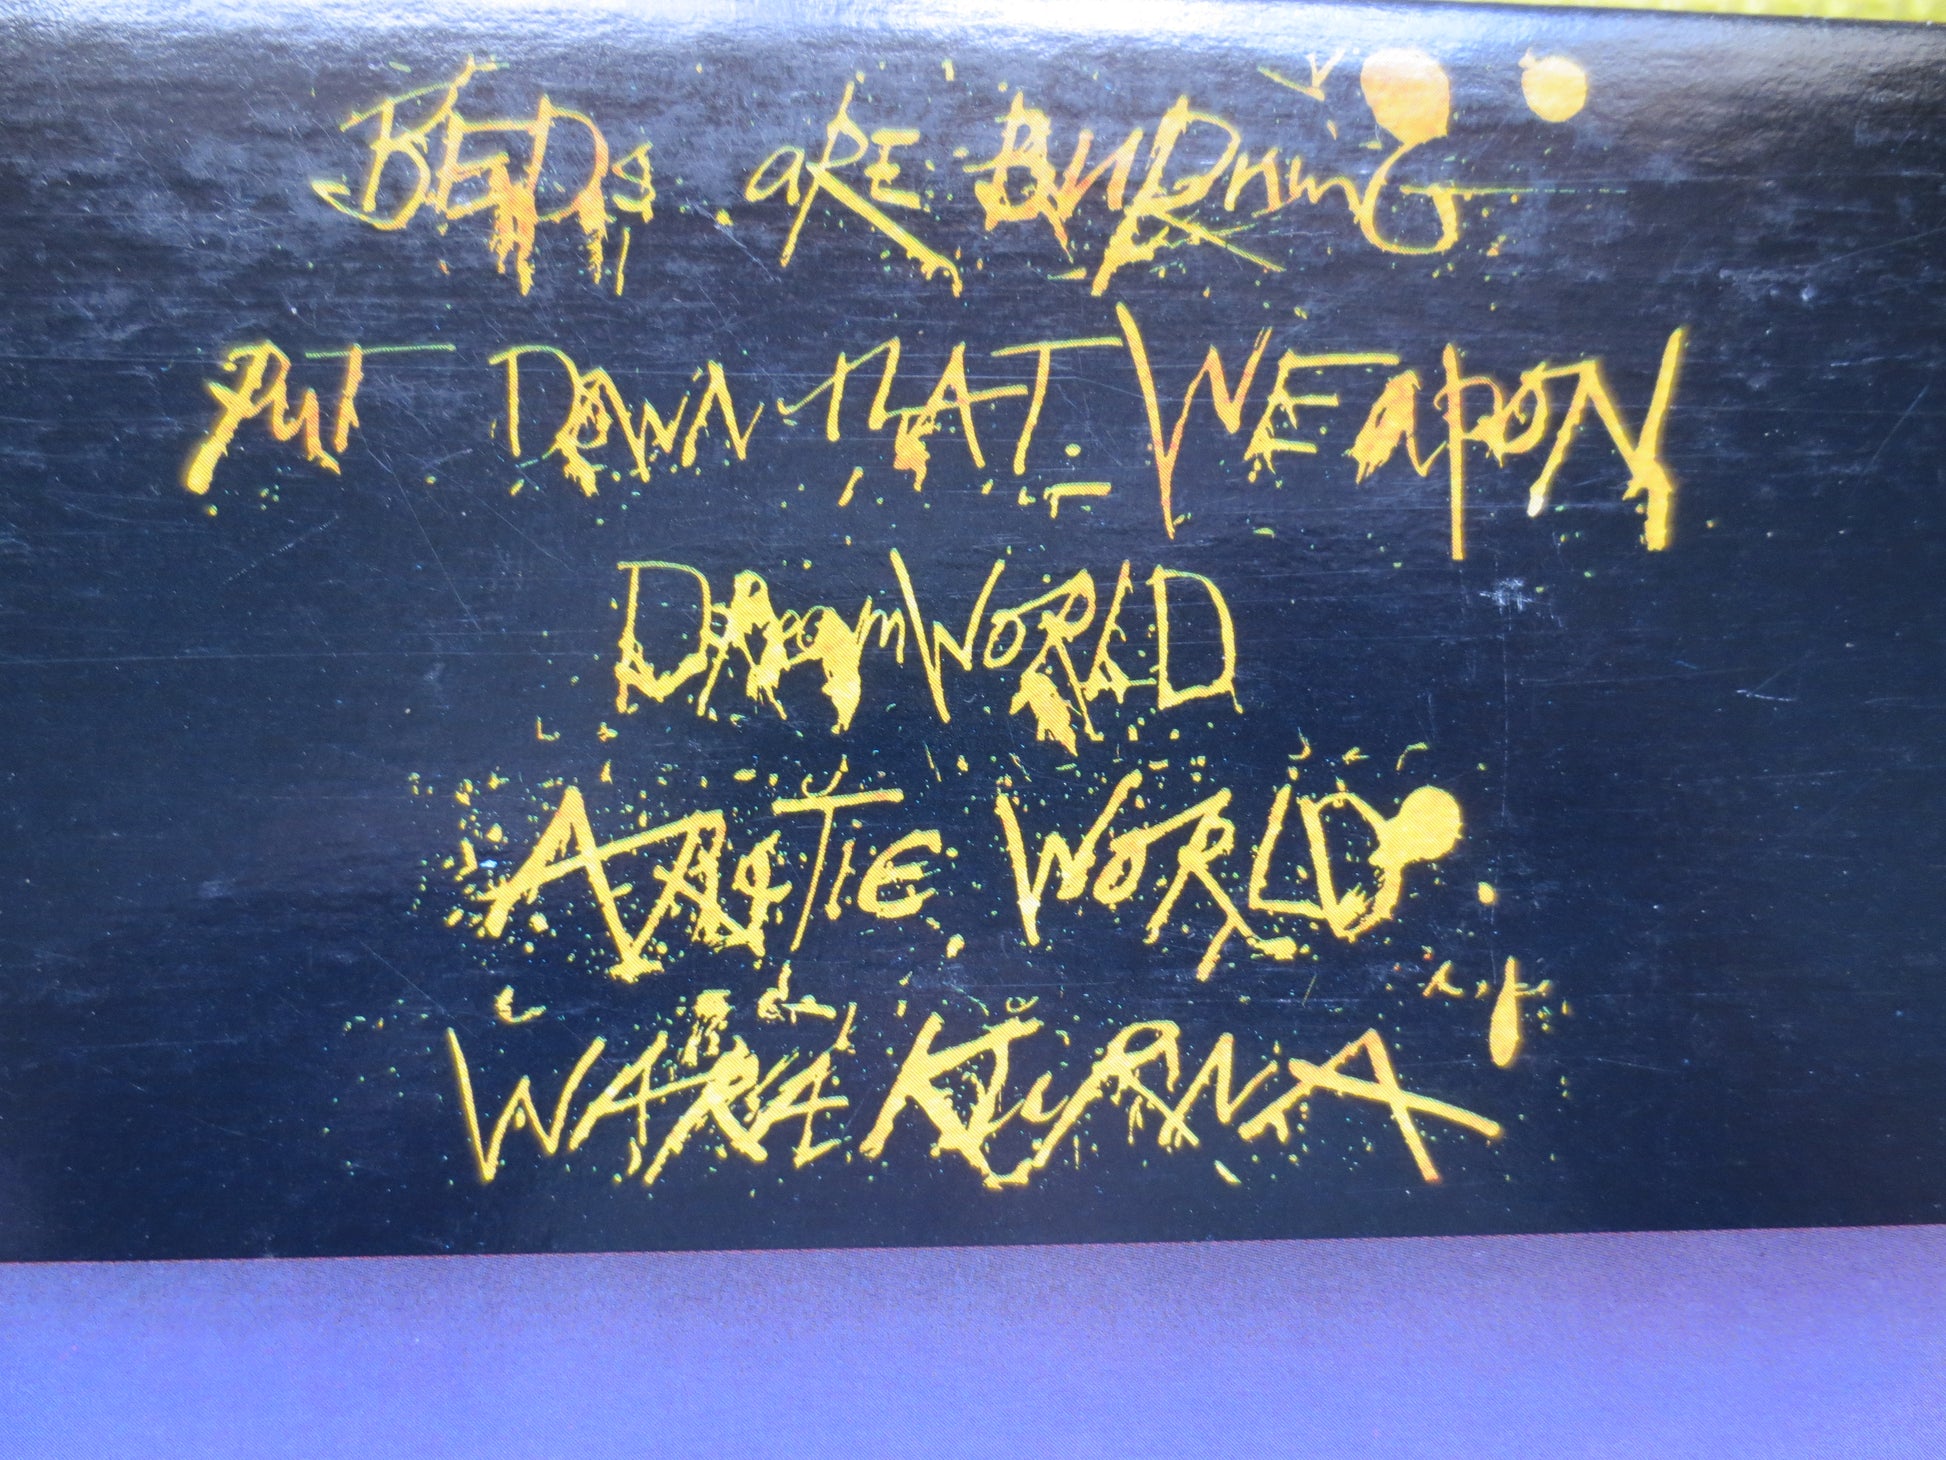 BEDs aRE BURninG
PUT DOWN THAT WEapON
DReamWORLD
ARcTIC WORLD
WARAKURNA